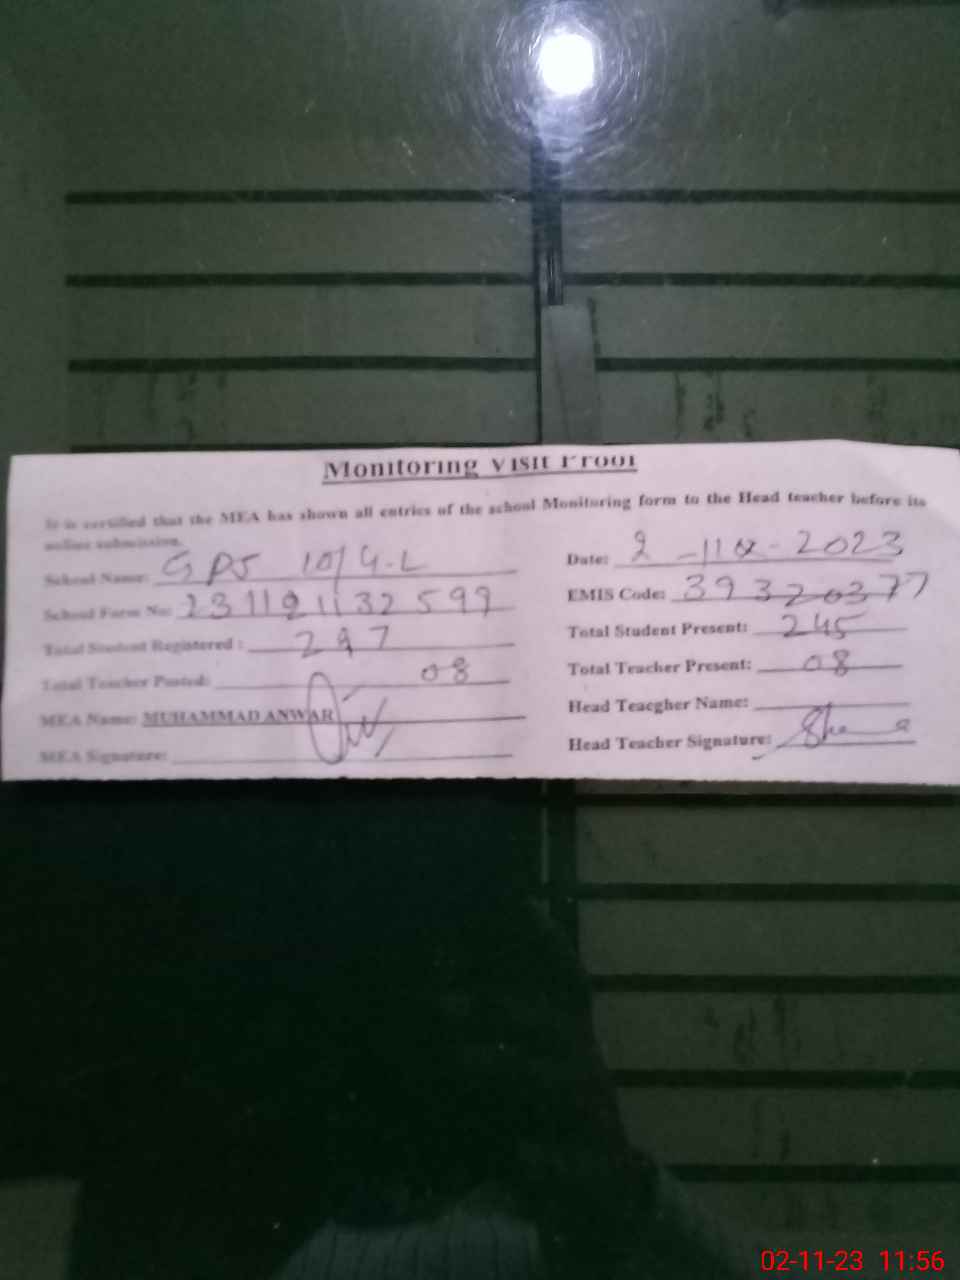 Monitoring Visit Proof
It is certified that the MEA has shown all entries of the school Monitoring form to the Head teacher before its
online submission.
School Name: GPS 10/G.L Date: 2-11-2023
School Form No: EMIS Code: 39320377
Total Student Registered : 297 Total Student Present: 245
Total Teacher Posted: 08 Total Teacher Present: 08
MEA Name: MUHAMMAD ANWAR Head Teacgher Name:
MEA Signature: Head Teacher Signature:
02-11-23 11:56